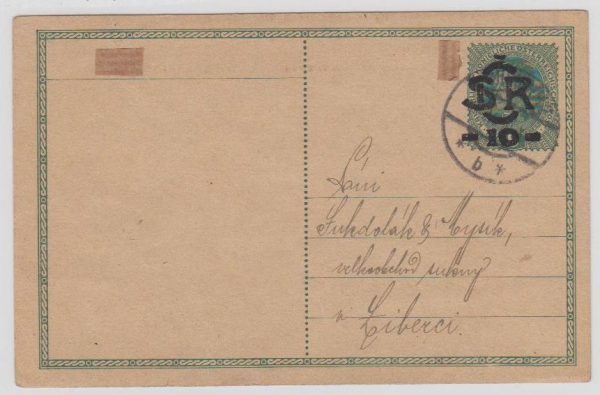 ČSR
-10-
* b *
Páni
Fukdolák & Mysík,
velkoobchod sukny
v
Liberci.